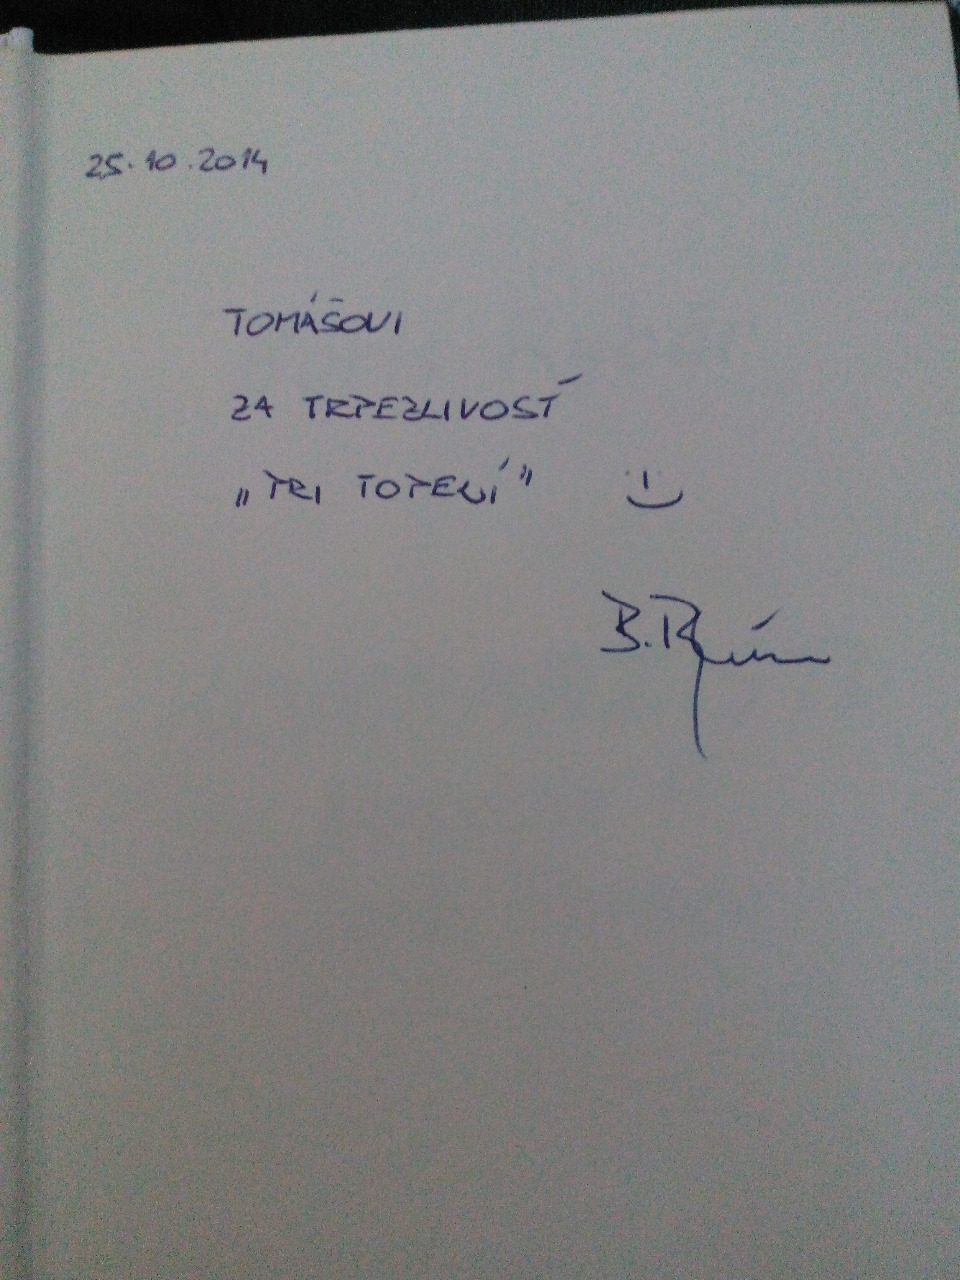 25.10.2014
TOMÁŠOVI
ZA TRPEZLIVOSŤ
„PRI TOPENÍ"
B.